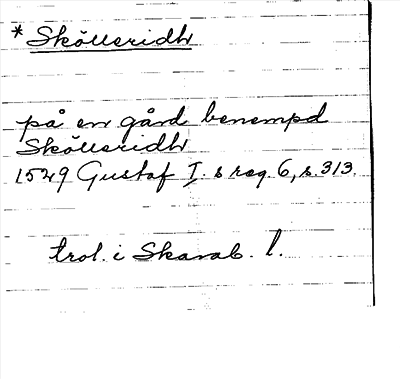 * Skölleridh
på en gård benempd
Skölleridh
1529 Gustaf I. s reg. 6, s. 313.
trol. i Skarab. l.